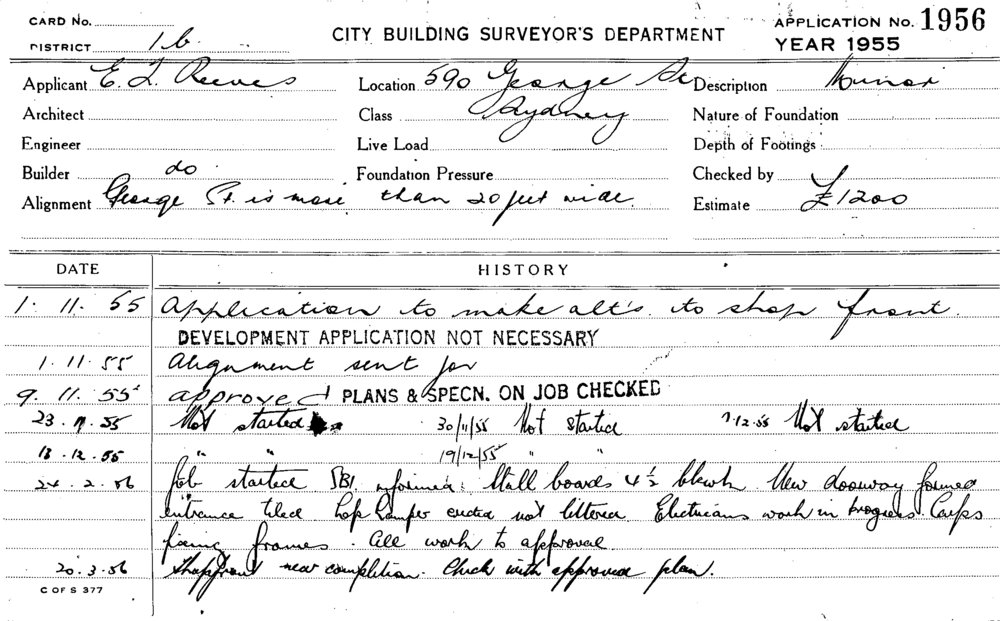 CARD No.
DISTRICT 1b.
CITY BUILDING SURVEYOR'S DEPARTMENT
APPLICATION No. 1956
YEAR 1955
Applicant E. L. Reeves Location 590 George St Description Minor
Architect Class Sydney Nature of Foundation
Engineer Live Load Depth of Footings
Builder do Foundation Pressure Checked by
Alignment George St. is more than 20 feet wide. Estimate £1200
DATE HISTORY
1. 11. 55 Application to make alt's. to shop front.
DEVELOPMENT APPLICATION NOT NECESSARY
1. 11. 55 Alignment sent for
9. 11. 55 approved PLANS & SPECN. ON JOB CHECKED
23. 11. 55 Not started 30/11/55 Not started 7-12-55 Not started
13. 12. 55 " " 19/12/55 " "
24. 2. 56 Job started informed. Stall boards 4½ New doorway formed
entrance tiled not Electricians work in progress. Carps
fixing frames. All work to approval
20. 3. 56 Shopfront near completion. Check with approved plan.
C OF S 377